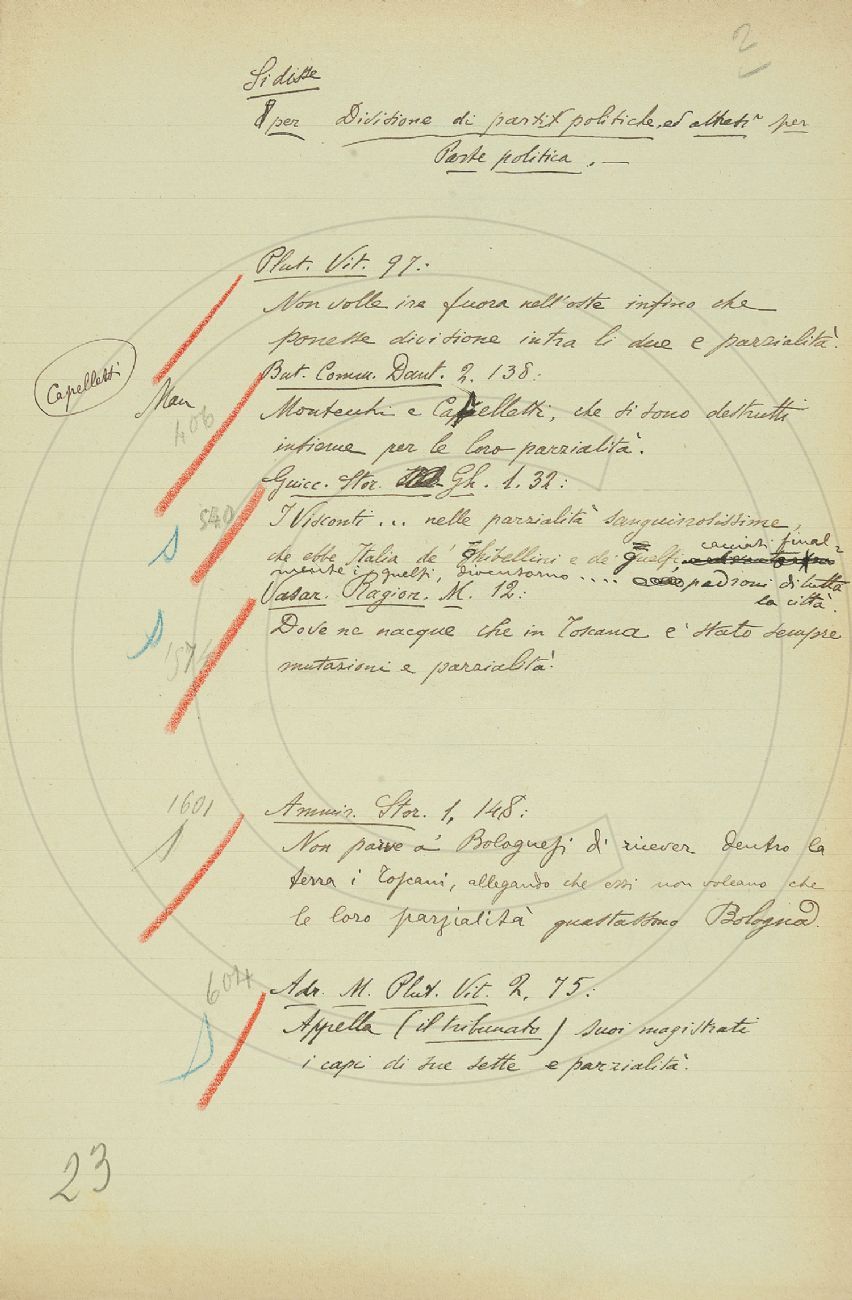 2
Si disse
per Divisione di parti politiche, ed altresì per
Parte politica. —
Plut. Vit. 97:
Non volle ire fuora nell'oste infino che
ponesse divisione intra li due e parzialità.
But. Comm. Dant. 2. 138:
Capelletti
Man
406
Montecchi e Capelletti, che si sono destrutti
insieme per le loro parzialità.
Guicc. Stor. Gh. 1. 32:
540
I Visconti... nelle parzialità sanguinosissime,
che ebbe Italia de' Ghibellini e de' Guelfi, cacciati final-
mente i guelfi, diventorno .... padroni di tutta
la città.
Vasar. Ragion. M. 12:
574
Dove ne nacque che in Toscana è stato sempre
mutazioni e parzialità.
1601
Ammir. Stor. 1, 148:
Non parve a' Bolognesi di ricever dentro la
terra i Toscani, allegando che essi non voleano che
le loro parzialità guastassono Bologna.
604
Adr. M. Plut. Vit. 2, 75:
Appella (il tribunato) suoi magistrati
i capi di sue sette e parzialità.
23